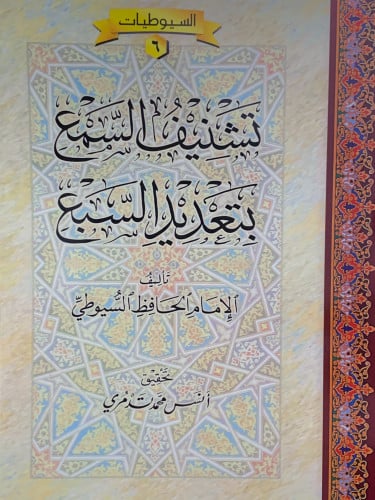 السيوطيات
٦
تَشْنِيفُ السَّمْعِ
بِتَعْدِيْدِ السَّبْعِ
تَأليفُ
الإمَامِ الحَافِظِ السُّيُوطِيِّ
تحقيق
أنس محمد تدمري